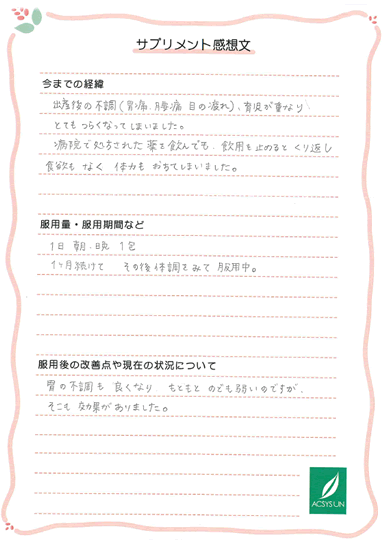 サプリメント感想文
今までの経緯
出産後の不調(胃痛、腰痛、目の疲れ)、育児が重なり
とてもつらくなってしまいました。
病院で処方された薬を飲んでも、飲用を止めるとくり返し
食欲もなく 体力もおちてしまいました。
服用量・服用期間など
1日 朝・晩 1包
1ヶ月続けて その後体調をみて服用中。
服用後の改善点や現在の状況について
胃の不調も良くなり もともとのども弱いのですが、
そこも効果がありました。
ACSYS UN